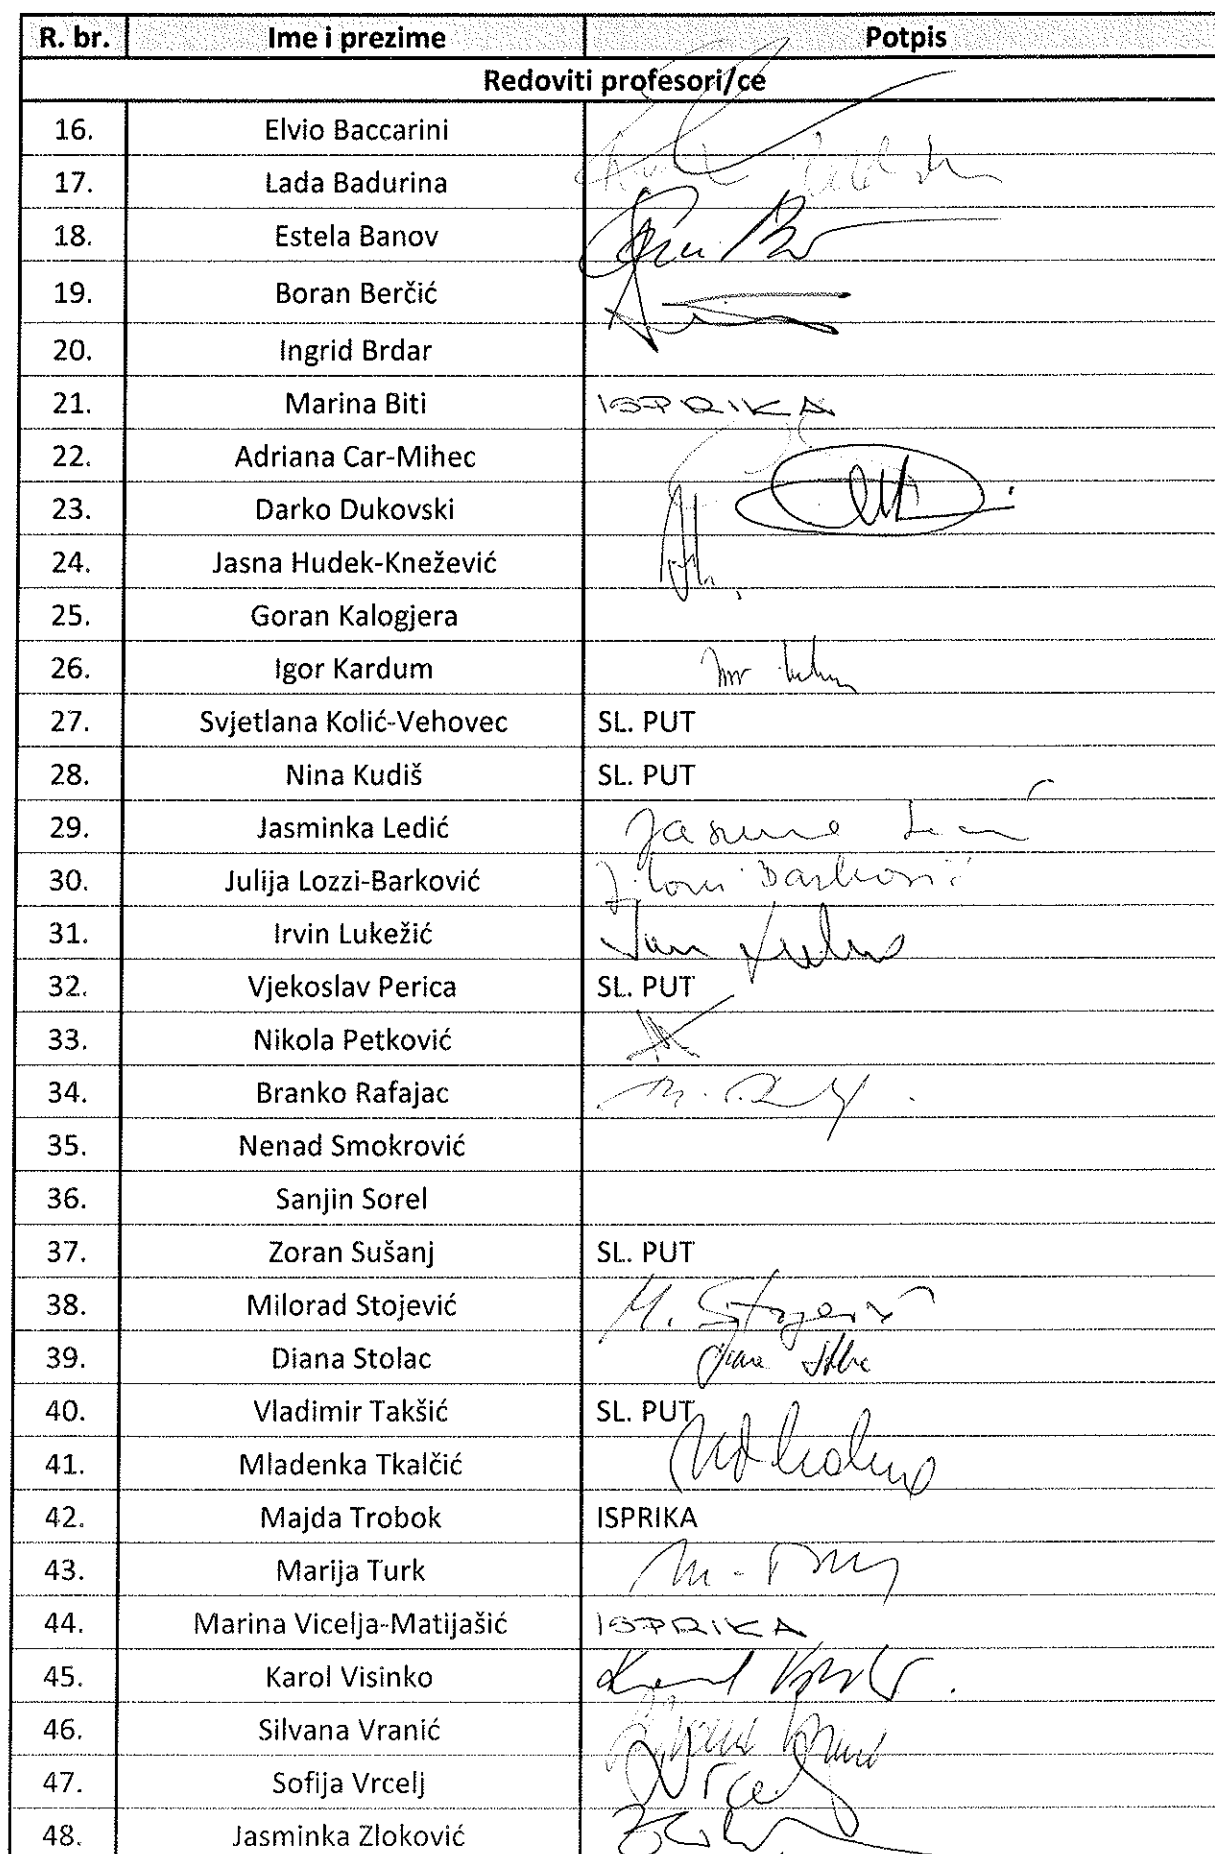 R. br. Ime i prezime Potpis
Redoviti profesori/ce
16. Elvio Baccarini
17. Lada Badurina
18. Estela Banov
19. Boran Berčić
20. Ingrid Brdar
21. Marina Biti ISPRIKA
22. Adriana Car-Mihec
23. Darko Dukovski
24. Jasna Hudek-Knežević
25. Goran Kalogjera
26. Igor Kardum
27. Svjetlana Kolić-Vehovec SL. PUT
28. Nina Kudiš SL. PUT
29. Jasminka Ledić
30. Julija Lozzi-Barković Barković
31. Irvin Lukežić
32. Vjekoslav Perica SL. PUT
33. Nikola Petković
34. Branko Rafajac
35. Nenad Smokrović
36. Sanjin Sorel
37. Zoran Sušanj SL. PUT
38. Milorad Stojević M. Stojević
39. Diana Stolac
40. Vladimir Takšić SL. PUT
41. Mladenka Tkalčić
42. Majda Trobok ISPRIKA
43. Marija Turk
44. Marina Vicelja-Matijašić ISPRIKA
45. Karol Visinko
46. Silvana Vranić
47. Sofija Vrcelj
48. Jasminka Zloković